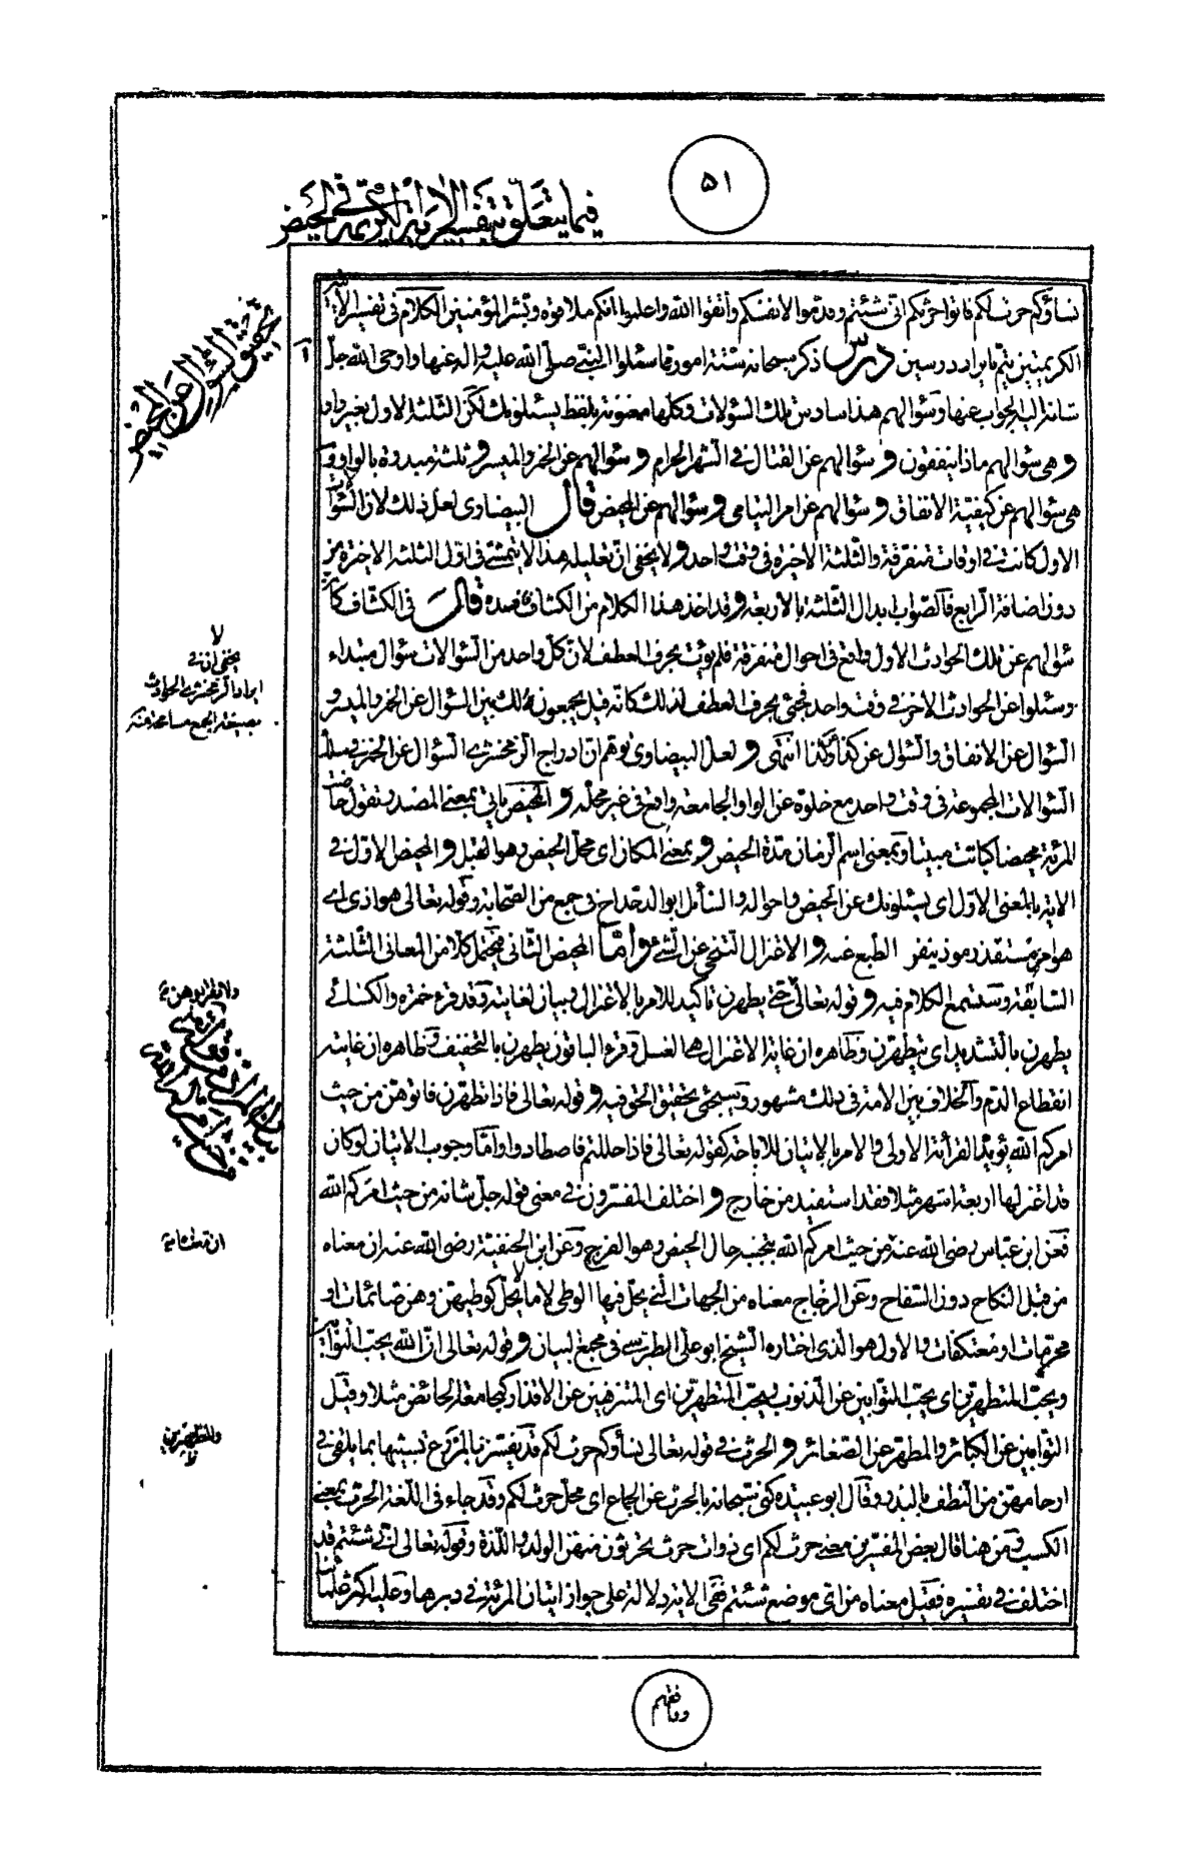 ٥١
فيما يتعلق بتفسير الاية الكريمة في الحيض
نساؤكم حرث لكم فاتوا حرثكم انى شئتم وقدموا لانفسكم واتقوا الله واعلموا انكم ملاقوه وبشر المؤمنين الكلام فى تفسير الايتين
الكريمتين يتم بايراد درسين درس ذكر سبحانه ستة امور قد سئلوا النبى صلى الله عليه واله عنها واوحى الله جل
شانه اليه الجواب عنها وسؤالهم هذا سادس تلك السؤلات وكلها معنونة بلفظ يسئلونك لكن الثلثة الاول بغير واو
وهى سؤالهم ماذا ينفقون وسؤالهم عن القتال فى الشهر الحرام وسؤالهم عن الخمر والميسر وثلثة مبدوة بالواو و
هى سؤالهم عن كيفية الانفاق وسؤالهم عن امر اليتامى وسؤالهم عن المحيض قال البيضاوى لعل ذلك لان السؤالات
الاول كانت فى اوقات متفرقة والثلثة الاخيرة فى وقت واحد ولا يخفى ان تعليله هذا لا يتمشى فى اول الثلثة الاخيرة من
دون اضافة الرابع فالصواب ابدال الثلثة بالاربعة وقد اخذ هذا الكلام من الكشاف قال فى الكشاف كان
سؤالهم عن تلك الحوادث الاول واقع فى احوال متفرقة فلم يؤت بحرف العطف لان كل واحد من السؤالات سؤال مبتداء
وسئلوا عن الحوادث الاخر فى وقت واحد فجئ بحرف العطف لذلك كانه قيل يجمعون لك بين السؤال عن الخمر والميسر و
السؤال عن الانفاق والسؤال عن كذا وكذا انتهى ولعل البيضاوى توهم ان ادراج الزمخشرى السؤال عن الخمر فى سلك
السؤالات المجموعة فى وقت واحد مع خلوه عن الواو الجامعة واقع فى غير محله والمحيض ياتى بمعنى المصدر تقول حاضت
المرئة محيضا كباتت مبيتا وبمعنى اسم الزمان مدة الحيض وبمعنى المكان اى محل الحيض وهو القبل والمحيض الاول فى
الاية بالمعنى الاول اى يسئلونك عن الحيض واحواله والسائل ابو الدحداح فى جمع من الصحابة وقوله تعالى هو اذى اى
هو امر مستقذر موذ ينفر الطبع عنه والاعتزال التنحى عن الشئ واما المحيض الثانى فيحتمل كلا من المعانى الثلثة
السابقة وستسمع الكلام فيه وقوله تعالى حتى يطهرن تاكيد للامر بالاعتزال وبيان لغايته وقد قرء حمزه والكسائى
يطهرن بالتشديد اى يتطهرن وظاهره ان غاية الاعتزال هى الغسل وقرء الباقون يطهرن بالتخفيف وظاهره ان غايته
انقطاع الدم والخلاف بين الامة فى ذلك مشهور وسيجئ تحقيق الحق فيه وقوله تعالى فاذا تطهرن فاتوهن من حيث
امركم الله يؤيد القرائة الاولى والامر بالاتيان للاباحة كقوله تعالى فاذا حللتم فاصطادوا واما وجوب الاتيان لو كان
قد اعتزلها اربعة اشهر مثلا فقد استفيد من خارج واختلف المفسرون فى معنى قوله جل شانه من حيث امركم الله
فعن ابن عباس رضى الله عنه من حيث امركم الله بتجنبه حال الحيض وهو الفرج وعن ابن الحنفية رضى الله عنه ان معناه
من قبل النكاح دون السفاح وعن الزجاج معناه من الجهات التى يحل فيها الوطى لا ما لا يحل كوطيهن وهن صائمات او
محرمات او معتكفات والاول هو الذى اختاره الشيخ ابو على الطبرسى فى مجمع البيان وقوله تعالى ان الله يحب التوابين
ويحب المتطهرين اى يحب التوابين عن الذنوب ويحب المتطهرين اى المتنزهين عن الاقذار كمجامعة الحائض مثلا وقيل
التوابين عن الكبائر والمتطهرين عن الصغائر والحرث فى قوله تعالى نساؤكم حرث لكم قد يفسر بالمزرع تشبيها بما يلقى فى
ارحامهن من النطف بالبذر وقال ابو عبيدة كنى سبحانه بالحرث عن الجماع اى محل حرث لكم وقد جاء فى اللغة الحرث بمعنى
الكسب ومن هنا قال بعض المفسرين معنى حرث لكم اى ذوات حرث تحرثون منهن الولد واللذة وقوله تعالى انى شئتم قد
اختلف فى تفسيره فقيل معناه من اى موضع شئتم ففى الاية دلالة على جواز اتيان المرئة فى دبرها وعليه اكثر علمائنا
ووافقهم
تحقيق السؤال عن المحيض
لا
يخفى ان فى
ايراد الزمخشرى الحوادث
بصيغة الجمع مسامحة منه
ولا تقربوهن
والمتطهرين